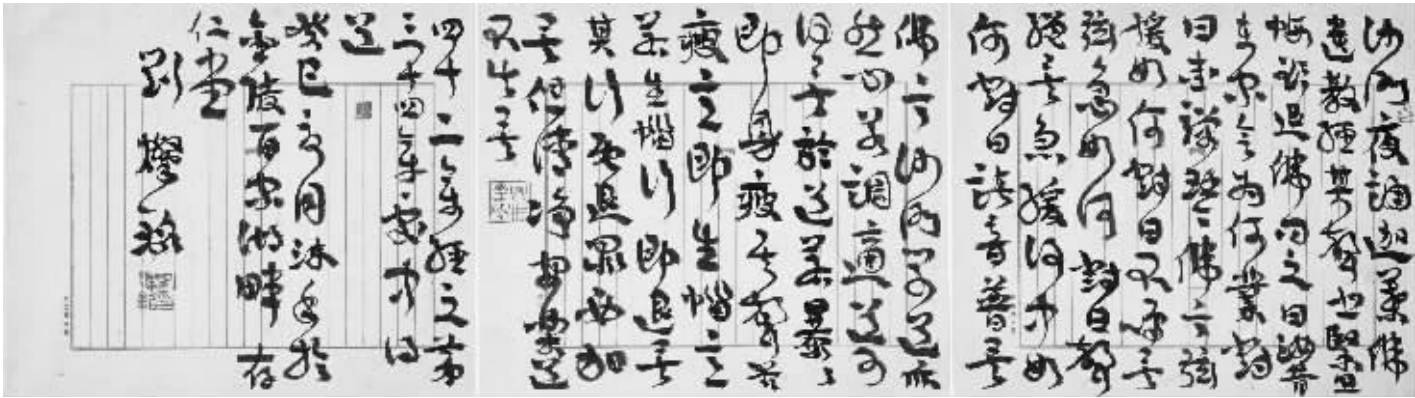 沙門夜誦迦葉佛
遺教經其聲悲緊思
悔欲退佛問之曰汝昔
在家曾為何業對
曰愛彈琴佛言弦
緩如何對曰不鳴矣
弦急如何對曰聲
絕矣急緩得中如
何對曰諸音普矣
佛言沙門學道亦
然心若調適道可
得矣於道若暴暴
即身疲其身若
疲意即生惱意
若生惱行即退矣
其行既退罪必加
矣但清淨安樂道
不失矣
四十二章經之第
三十四章處中得
道
癸巳月沐手於
金陵百家湖畔存
仁堂
劉燦銘